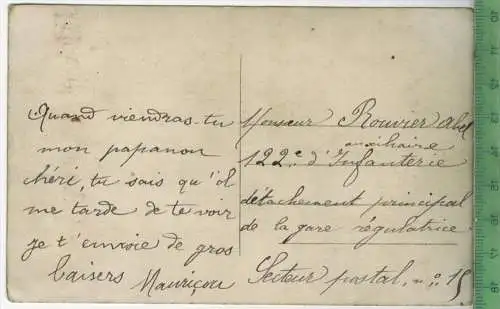 Quand viendras-tu
mon papanou
chéri, tu sais qu'il
me tarde de te voir
je t'envoie de gros
baisers Mauriçou
Monsieur Rouvier Abel
auxiliaire
122e d'Infanterie
détachement principal
de la gare régulatrice
Secteur postal. no 15